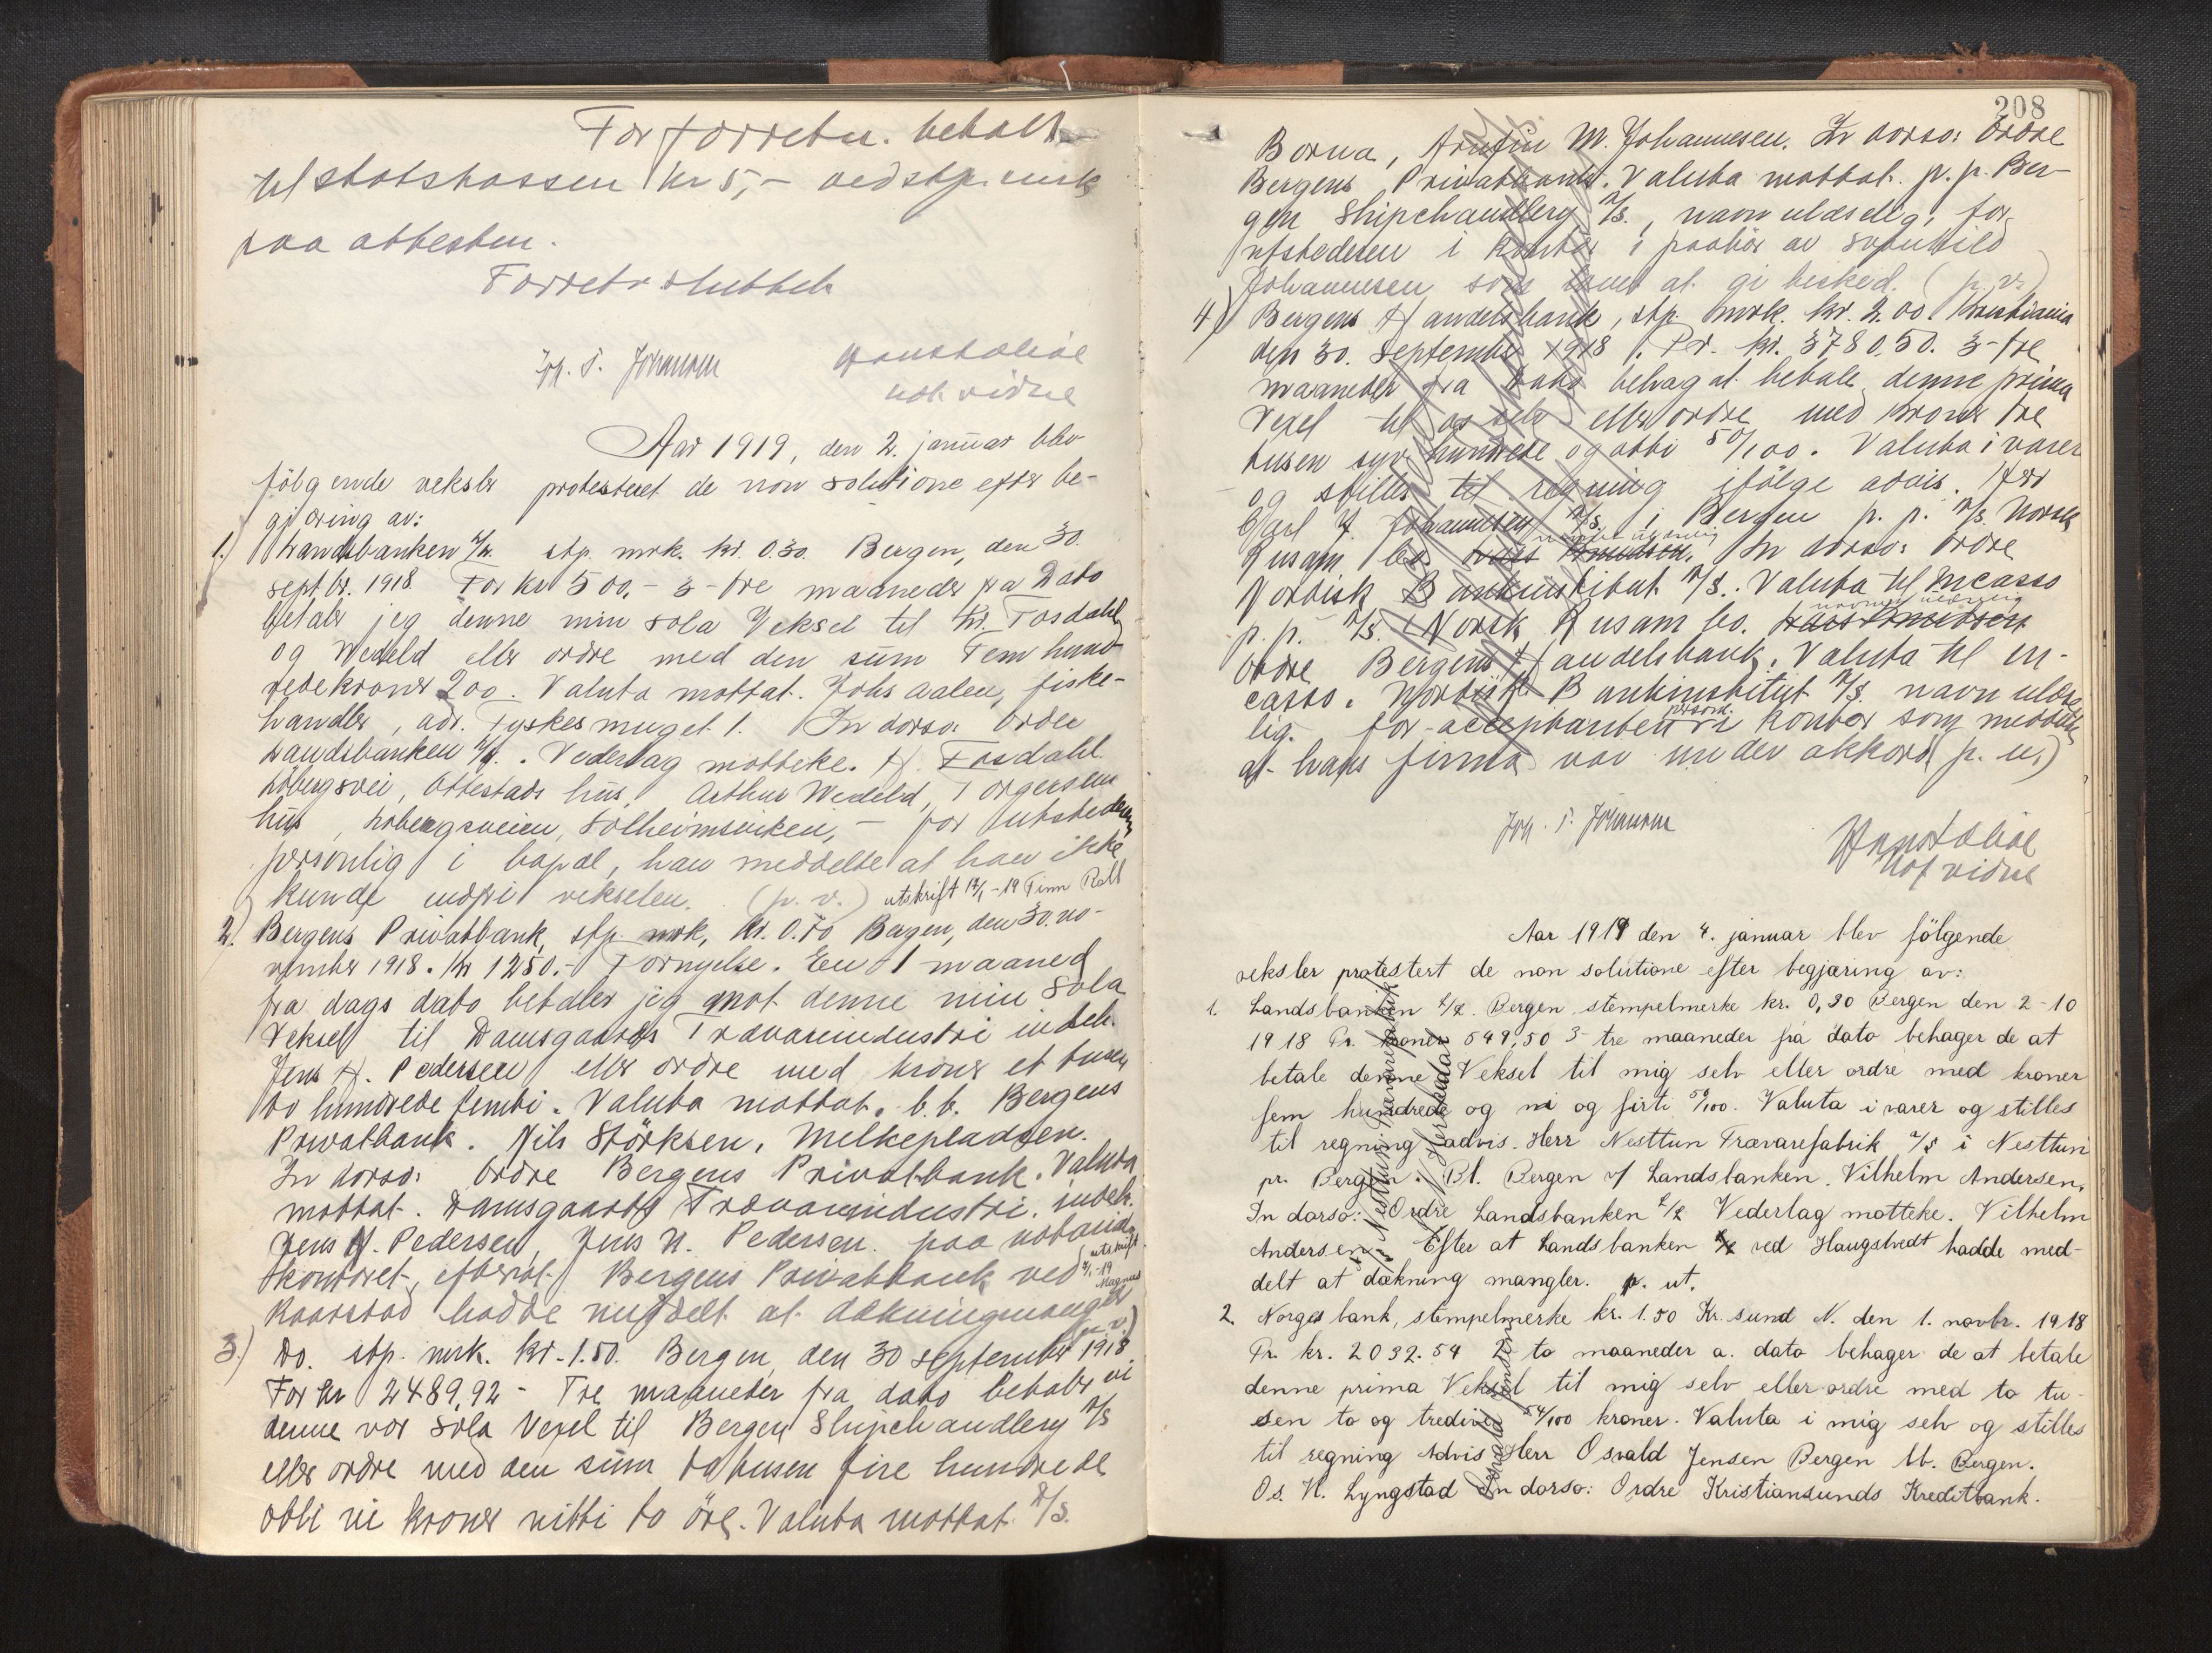 For forretn. betalt
til statskassen kr 5,- ved stp. merk
paa attesten.
Forretn sluttet
Joh. T. Johannesen
not. vidne
Aar 1919, den 2. januar blev
følgende veksler protesteret de non solutione efter be-
gjæring av:
1.) Landsbanken A/S. stp. mrk. kr. 0.30. Bergen, den 30.
septbr. 1918. For kr 500,- 3- tre maaneder fra Dato
betaler jeg denne min sola Veksel til H. Fosdahl
og Wedeld eller ordre med den sum Fem hund-
rede kroner 200. Valuta mottat. Johs Aalen, fiske-
handler, adr. Tyskesmuget 1. In dorso: Ordre
Landsbanken A/S. Vederlag motteke. H. Fosdahl
Løbergsvei, Ottestads hus, Arthur Wedeld, Torgersens
hus, Løbergsveien, Solheimsviken, - for utstederen
personlig i bopæl, han meddelte at han ikke
kunde indfri vekselen. (p. v.) utskrift 17/1-19 Finn
2.) Bergens Privatbank, stp. mrk, kr. 0.70 Bergen, den 30. no-
vember 1918. Kr 1250.- Fornyelse. En 1 maaned
fra dags dato betaler jeg mot denne min Sola
Veksel til Damsgaards Trævareindustri indeh.
Jens H. Pedersen eller ordre med kroner et tusen
to hundrede femti. Valuta mottat. b. b. Bergens
Privatbank. Nils Störksen, Melkepladsen.
In dorso: Ordre Bergens Privatbank. Valuta
mottat. Damsgaards Trævareindustri. indeh.
Jens H. Pedersen, Jens H. Pedersen. paa notarial
kontoret, efterat Bergens Privatbank ved utskrift 7/1-19 Magnus
Kaarstad hadde meddelt at dækning mangler
(p. v.)
3.) Do. stp. mrk. kr. 1.50. Bergen, den 30 september 1918
For kr 2489,92 - Tre maaneder fra dato betaler vi
denne vor Sola Vexel til Bergen Shipchandlery A/S
eller ordre med den sum to tusen fire hundrede
otti ni kroner nitti to öre. Valuta mottat. A/S.
208
Borna, Arnfin M. Johannesen. In dorso: Ordre
Bergens Privatbank. Valuta mottat. p. p. Ber-
gen Shipchandlery A/S., navn ulæselig, for
utstederen i kontor i paahör av Svanhild
Johannesen som lovet at gi besked. (p. v.)
4) Bergens Handelsbank, stp. mrk. kr. 2.00 Kristiania
den 30. September 1918. Pr. kr. 3780.50. 3- tre
maaneder fra Dato behag at betale denne prima
Vexel til os selv eller ordre med kroner tre
tusen syv hundrede og otti 50/100. Valuta i varer
og stilles til regning ifölge advis. Herr
Carl J. Johannesen A/S. i Bergen p. p. A/S. Norsk
Rusam Co. navnet ulæselig. In dorso: Ordre
Nordisk Bankinstitut A/S. Valuta til incasso
navnet ulæselig
p. p. A/S. Norsk Rusam Co. Lars Knutsen
Ordre Bergens Handelsbank. Valuta til in-
casso. Nordisk Bankinstitut A/S navn ulæse-
lig. for acceptanten person. i kontor som meddelte
at hans firma var under akkord (p. u.)
Joh. T. Johannesen
Not vidne
Aar 1919 den 4. januar blev følgende
veksler protestert de non solutione efter begjæring av:
1. Landsbanken A/S. Bergen, stempelmerke kr. 0,30 Bergen den 2-10
1918 Pr. kroner 549,50 3- tre maaneder fra dato behager de at
betale denne Veksel til mig selv eller ordre med kroner
fem hundrede og ni og firti 50/100. Valuta i varer og stilles
til regning advis. Herr Nesttun Trævarefabrik A/S i Nesttun
pr. Bergen. Bt. Bergen i/ Landsbanken. Vilhelm Andersen.
In dorso: Ordre Landsbanken A/S Vederlag motteke. Vilhelm
Andersen. Efter at Landsbanken A/S ved Haugstvedt hadde med-
delt at dækning mangler. p. ut.
2. Norges bank, stempelmerke kr. 1.50 Kr.sund N. den 1. novbr. 1918
Pr. kr. 2032.54 2 to maaneder a. dato behager de at betale
denne prima Veksel til mig selv eller ordre med to tu-
sen to og tredive 54/100 kroner. Valuta i mig selv og stilles
til regning Advis Herr Osvald Jensen Bergen bt. Bergen.
Os. H. Lyngstad In dorso: Ordre Kristiansunds Kreditbank.